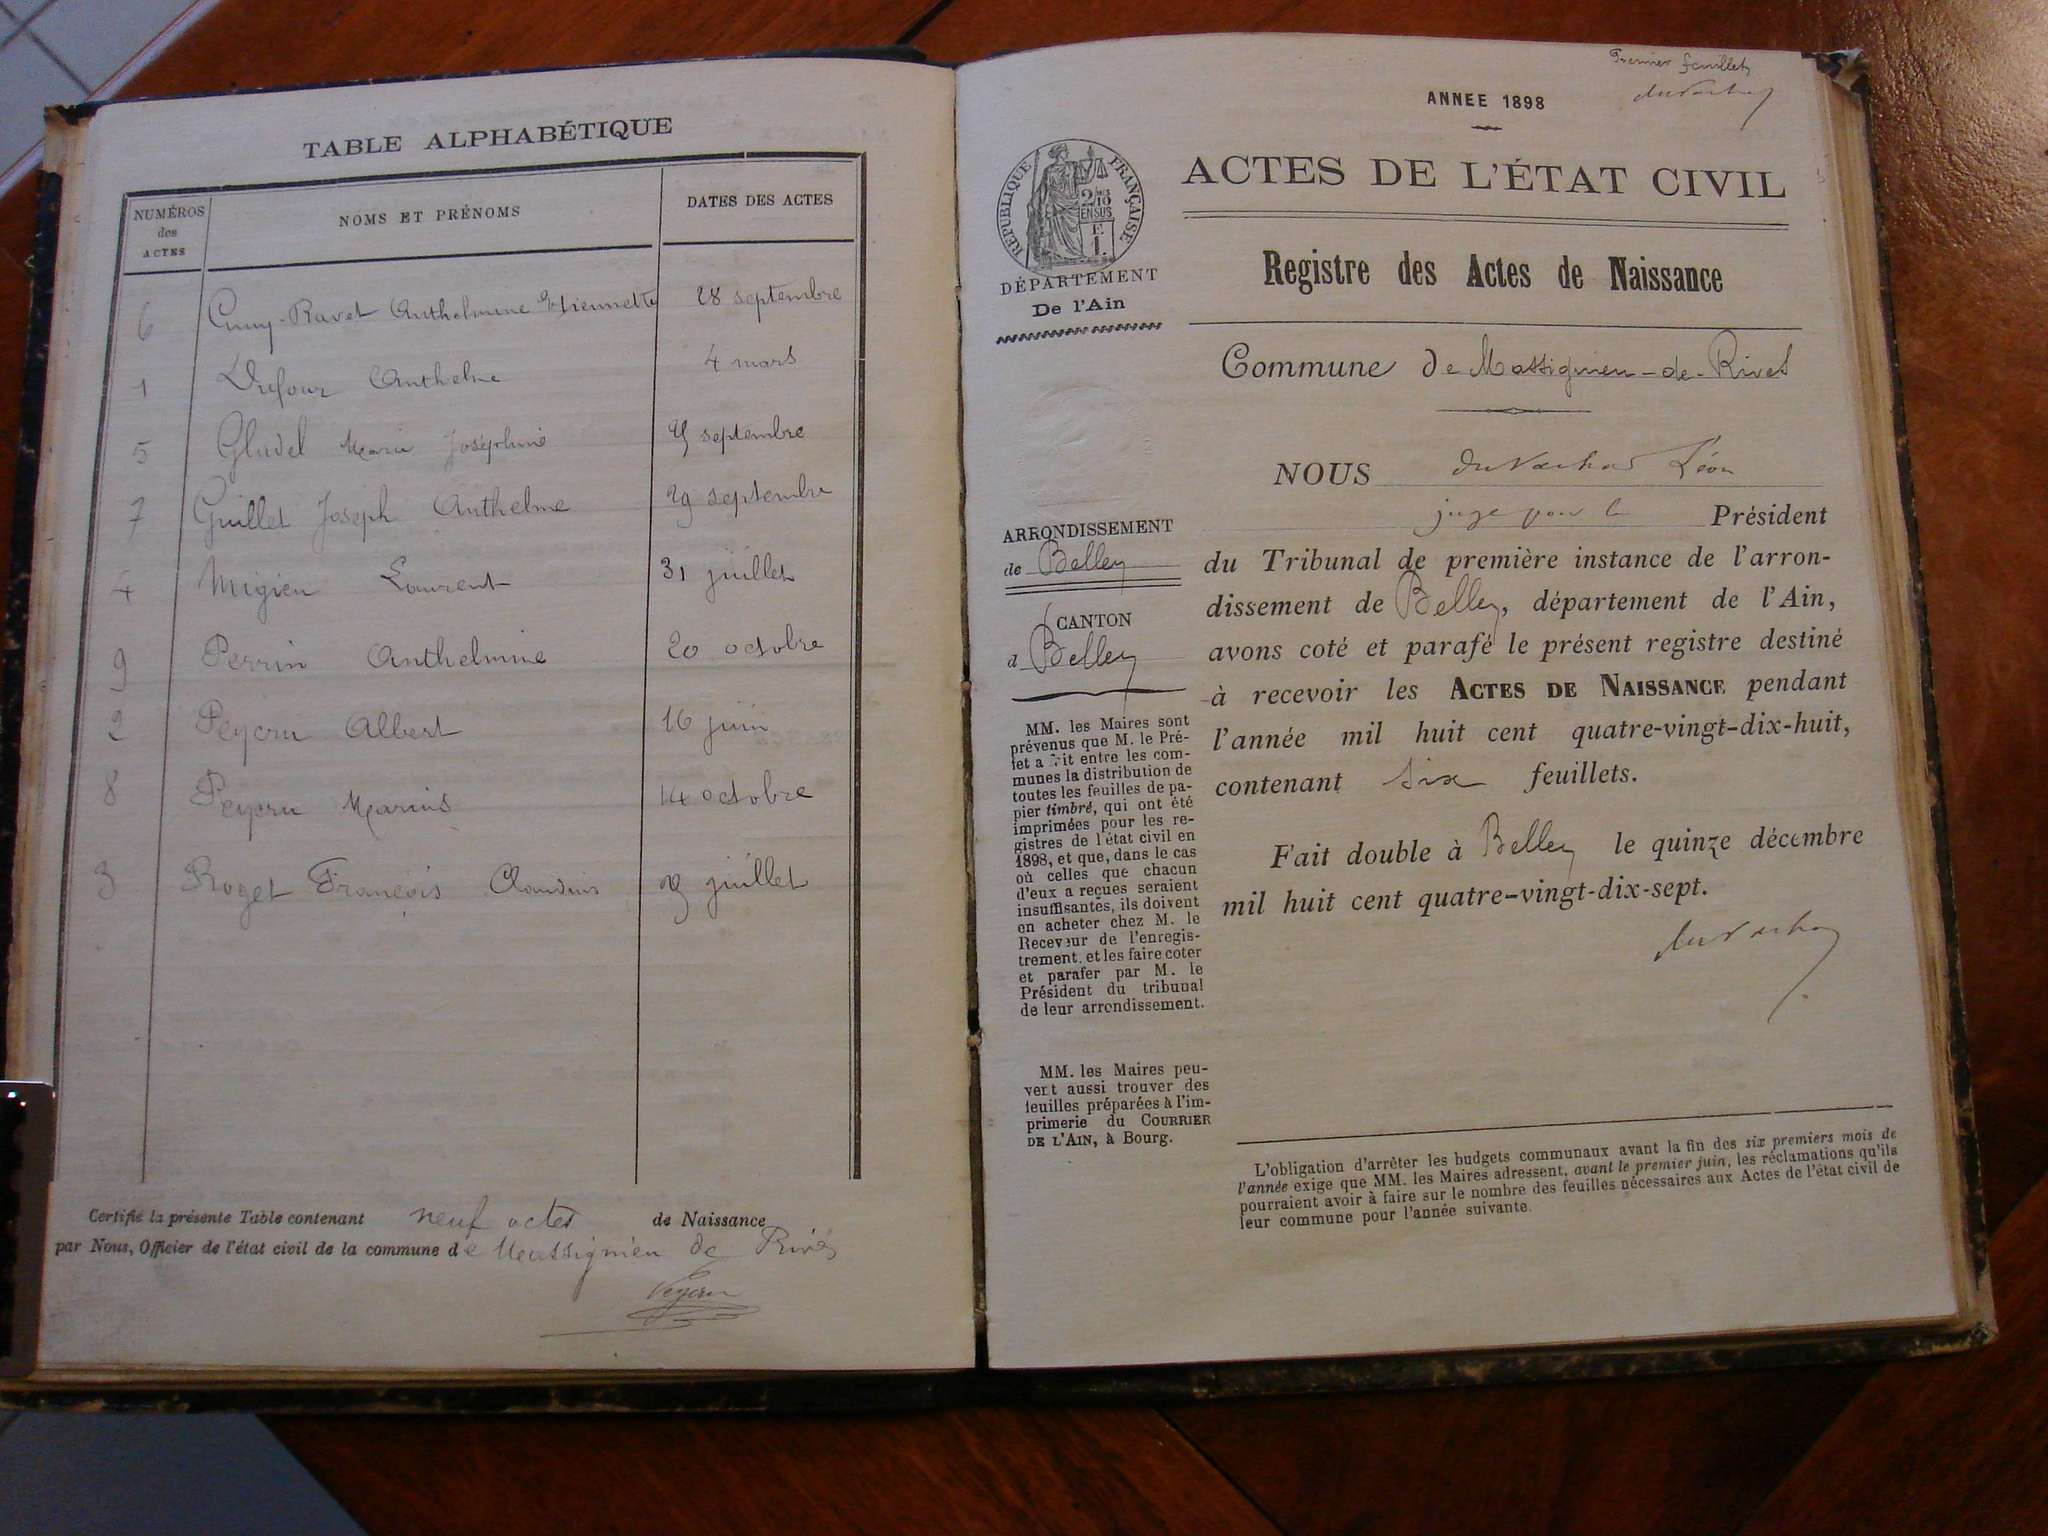 TABLE ALPHABÉTIQUE
NUMÉROS
des
ACTES
NOMS ET PRÉNOMS
DATES DES ACTES
6 Cuny-Ravet Anthelmine Etiennette 28 septembre
1 Dufour Anthelme 4 mars
5 Gludel Marie Joséphine septembre
7 Guillet Joseph Anthelme 29 septembre
4 Migieu Laurent 31 juillet
9 Perrin Anthelmine 20 octobre
2 Peycru Albert 16 juin
8 Peycru Marius 14 octobre
3 Roget François Claudius juillet
Certifié la présente Table contenant neuf actes de Naissance
par Nous, Officier de l'état civil de la commune de Massignieu de Rives
Peycru
Premier feuillet
ANNEE 1898
RÉPUBLIQUE FRANÇAISE
2/10
EN SUS
1.
DÉPARTEMENT
De l'Ain
ACTES DE L'ÉTAT CIVIL
Registre des Actes de Naissance
Commune de Massignieu-de-Rives
NOUS Léon
juge pour le Président
du Tribunal de première instance de l'arron-
dissement de Belley, département de l'Ain,
avons coté et parafé le présent registre destiné
à recevoir les ACTES DE NAISSANCE pendant
l'année mil huit cent quatre-vingt-dix-huit,
contenant six feuillets.
Fait double à Belley le quinze décembre
mil huit cent quatre-vingt-dix-sept.
ARRONDISSEMENT
de Belley
CANTON
d Belley
MM. les Maires sont
prévenus que M. le Pré-
fet a fait entre les com-
munes la distribution de
toutes les feuilles de pa-
pier timbré, qui ont été
imprimées pour les re-
gistres de l'état civil en
1898, et que, dans le cas
où celles que chacun
d'eux a reçues seraient
insuffisantes, ils doivent
en acheter chez M. le
Receveur de l'enregis-
trement, et les faire coter
et parafer par M. le
Président du tribunal
de leur arrondissement.
MM. les Maires peu-
vent aussi trouver des
feuilles préparées à l'im-
primerie du COURRIER
DE L'AIN, à Bourg.
L'obligation d'arrêter les budgets communaux avant la fin des six premiers mois de
l'année exige que MM. les Maires adressent, avant le premier juin, les réclamations qu'ils
pourraient avoir à faire sur le nombre des feuilles nécessaires aux Actes de l'état civil de
leur commune pour l'année suivante.